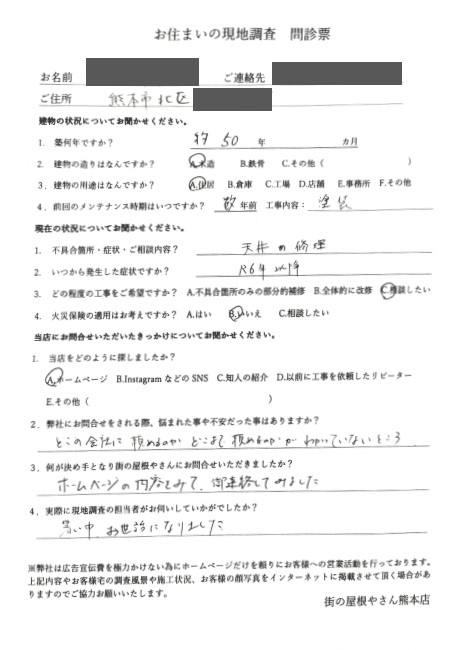 お住まいの現地調査 問診票
お名前 ご連絡先
ご住所 熊本市北区
建物の状況についてお聞かせください。
1. 築何年ですか? 約 50 年 カ月
2. 建物の造りはなんですか? A.木造 B.鉄骨 C.その他( )
3. 建物の用途はなんですか? A.住居 B.倉庫 C.工場 D.店舗 E.事務所 F.その他
4. 前回のメンテナンス時期はいつですか? 数 年前 工事内容: 塗装
現在の状況についてお聞かせください。
1. 不具合箇所・症状・ご相談内容? 天井の修理
2. いつから発生した症状ですか? R6年以降
3. どの程度の工事をご希望ですか? A.不具合箇所のみの部分的補修 B.全体的に改修 C.相談したい
4. 火災保険の適用はお考えですか? A.はい B.いいえ C.相談したい
当店にお問合せいただいたきっかけについてお聞かせください。
1. 当店をどのように探しましたか?
A.ホームページ B.InstagramなどのSNS C.知人の紹介 D.以前に工事を依頼したリピーター
E.その他( )
2. 弊社にお問合せをされる際、悩まれた事や不安だった事はありますか?
どこの会社に頼めるのか どこまで頼めるのかがわかっていないところ
3. 何が決め手となり街の屋根やさんにお問合せいただきましたか?
ホームページの内容をみて、御連絡してみました
4. 実際に現地調査の担当者がお伺いしていかがでしたか?
暑い中、お世話になりました
※弊社は広告宣伝費を極力かけない為にホームページだけを頼りにお客様への営業活動を行っております。
上記内容やお客様宅の調査風景や施工状況、お客様の顔写真をインターネットに掲載させて頂く場合があ
りますのでご協力お願いいたします。
街の屋根やさん熊本店